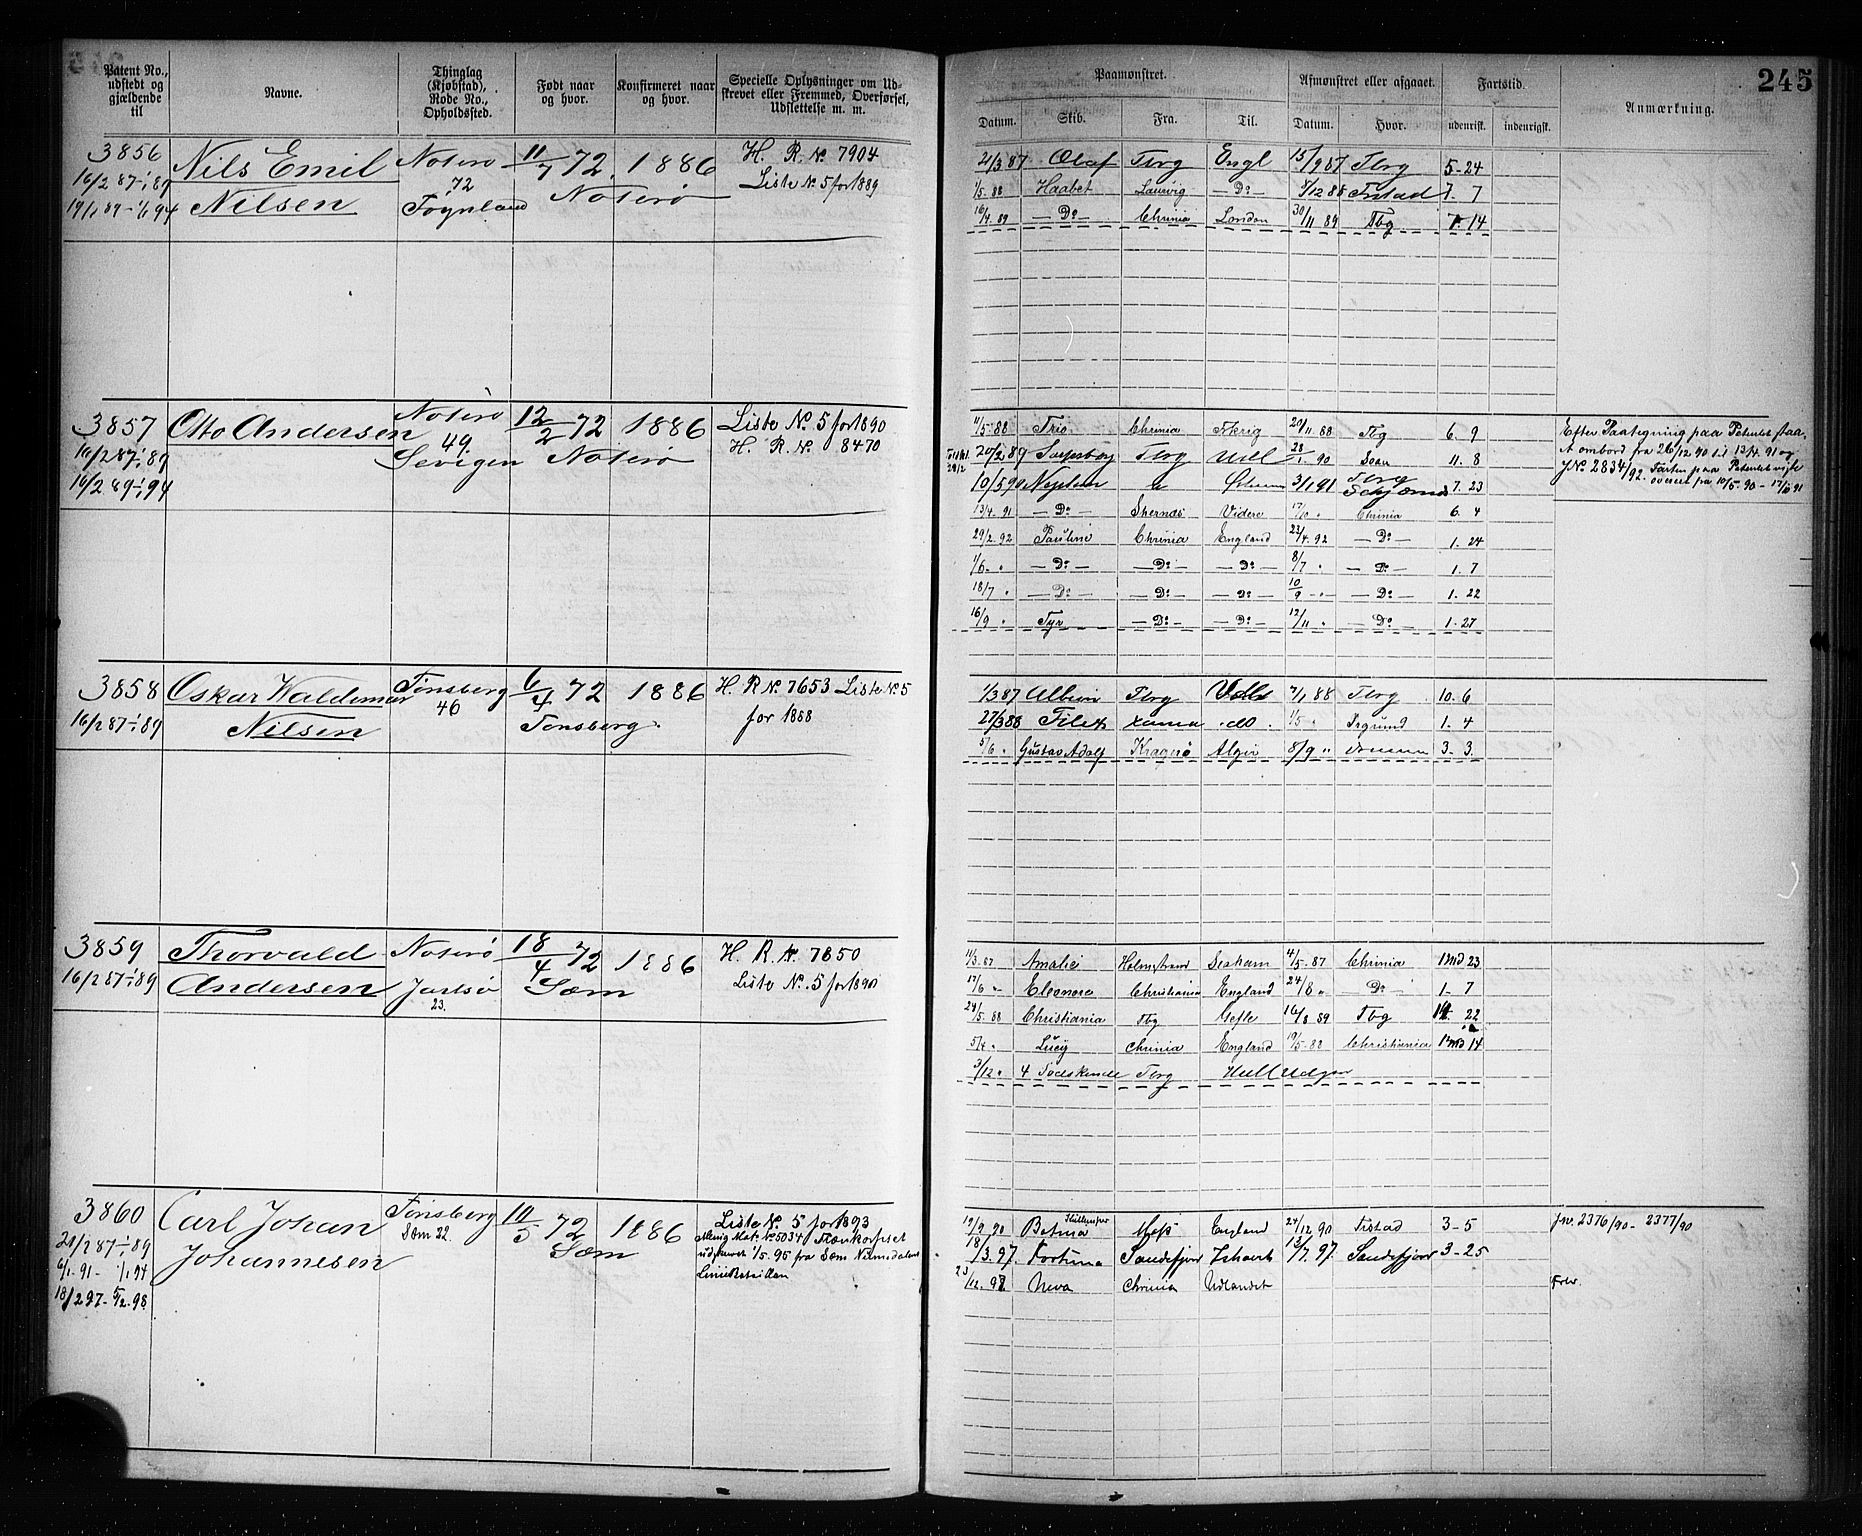 245
Patent No., udstedt og gjældende til
Navne.
Thinglag (Kjøbstad), Rode No., Opholdssted.
Født naar og hvor.
Konfirmeret naar og hvor.
Specielle Oplysninger om Udskrevet eller Fremmed, Overførsel, Udslettelse m. m.
Paamønstret.
Afmønstret eller afgaaet.
Fartstid.
Anmærkning.
Datum. Skib. Fra. Til. Datum. Hvor. udenrigsk. indenrigsk.
3856 Nils Emil Nøterø 11/7 72. 1886 H. R. No 7904
16/2 87-1/1 89 Nilsen 72 Nøterø Liste No. 5 for 1889
19/1 89-1/1 94 Føynland
21/3 87 Olaf Tbrg Engl 15/9 87 Tbrg 5-24
1/5. 88 Haabet Laurvig — Do — 7/12 88 Frstad 7. 7
16/4. 89 — Do — Chrinia London 30/11 89 Tbg 7. 14
3857 Otto Andersen Nøterø 12/2 72 1886 Liste No. 5 for 1890
16/2 87-1/1 89 49. Nøterø H. R. No 8470
16/2 89-1/1 94
11/5. 88 Trio Chrinia 20/11. 88 Tbg 6. 9
20/2 89 Tbrg 28/1. 90 11. 8
10/5 90 3/1 91 Tbrg 7. 23
13/4. 91 — Do — Videre 17/10 " Chrinia 6. 4
29/2. 92 Pauline Chrinia England 23/4. 92 — Do — 1. 24
1/6. " — Do — — Do — — Do — 8/7 " — Do — 1. 7
18/7 " — Do — — Do — — Do — 10/9 " — Do — 1. 22
16/9 " Tyr — Do — — Do — 12/11 " — Do — 1-27
Efter Paategning paa Patentet staa.
t ombord fra 26/12 90 til 13/4. 91 og
JNo 2834/92. Farten paa Patentet
fra 10/5. 90 - 17/10 91
3858 Oskar Waldemar Tønsberg 6/4 72 1886 H. R No. 7653 Liste No 5
16/2 87-1/1 89 Nilsen 46 Tønsberg. for 1888
1/3 87 Albion Tbrg 7/1 88 Tbrg 10. 6
27/3 88 do. 1/5 " Prgrund 1. 4
5/6 " Gustav Adolf Kragerø Algier 8/9 " 3. 3.
3859 Thorvald Nøterø 18/4 72 1886 H. R. No. 7850
16/2 87-1/1 89 Andersen Jarlsø 23. Sæm Liste No. 5 for 1890
11/3. 87 Amalie Holmstrand Seaham 4/5. 87 Chrinia 1 md 23
17/6 " Eleonore Christiania England 24/8 " Do 1. 7
24/5. 88 Christiania Tbg Gefle 16/8 89 Tbg 14. 22
5/4 " Lucy Chrinia England 19/5. 88 Christiania 1 md 14
3/12 " 4 Sødskende Tbrg Hull Udgaar
3860 Carl Johan Tønsberg 10/5 72 1886 Liste No. 5 for 1893
Johannesen Sæm 22. Sæm Menig Mat. No 5034 Flaadekorpset
6/1. 91 - 1/1 94 udskrevet 1/5. 95 fra Sæm Numedalens
18/2 97 - 5/2. 98. Liniebataillon
19/9. 90 Betuia Moss England 24/12. 90 Frstad 3-5 Jnr. 2376/90 - 2377/90
18/3. 97. Fortuna Sandefjord 13/7. 97. Sandefjord 3-25
23/12. 97 Neva Chrinia Udlandet